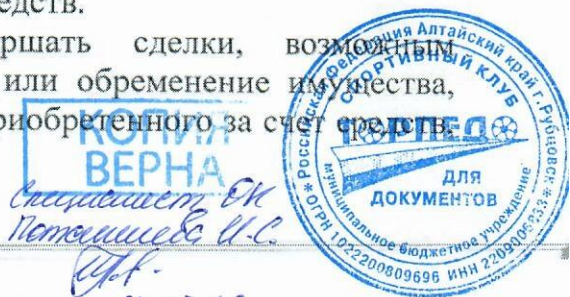 едств.
ршать сделки, возможным
или обременение имущества,
риобретенного за счет средств,
КОПИЯ
ВЕРНА
Специалист ОК
И.С.
Российская Федерация Алтайский край г. Рубцовск
СПОРТИВНЫЙ КЛУБ
ТОРПЕДО
ДЛЯ
ДОКУМЕНТОВ
муниципальное бюджетное учреждение
* ОГРН 1022200809696 ИНН 2209006233 *